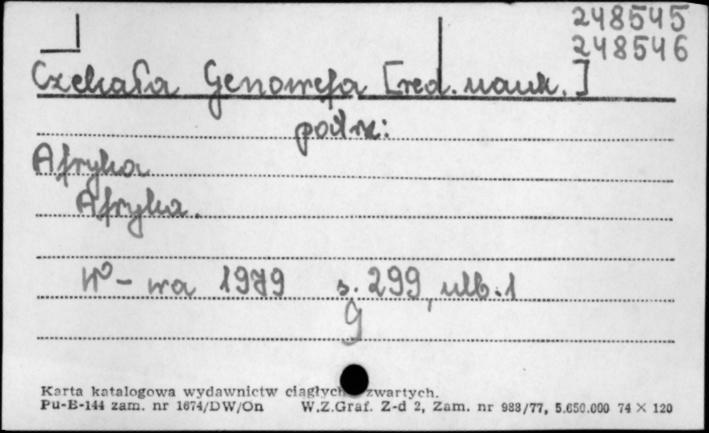 248545
248546
Czekała Genowefa [red. nauk.]
patrz:
Afryka
Afryka.
W-wa 1979 s. 299, nlb. 1
g
Karta katalogowa wydawnictw ciągłych zwartych.
Pu-B-144 zam. nr 1674/DW/On W.Z.Graf. Z-d 2, Zam. nr 988/77, 5.650.000 74 × 120